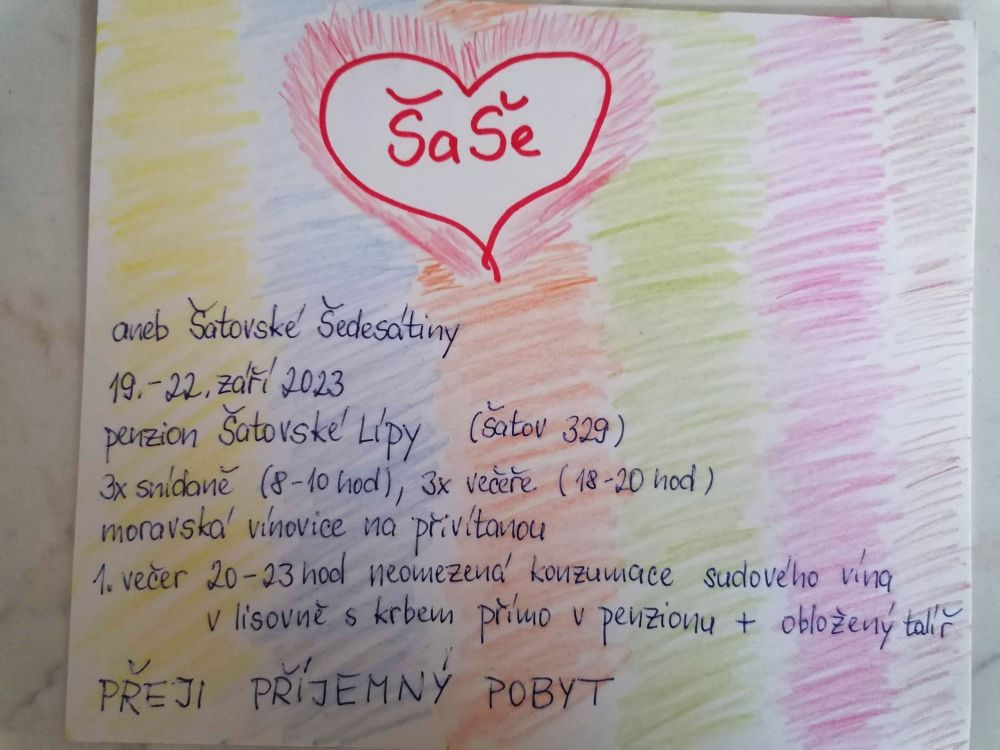 ŠaŠe
aneb Šatovské Šedesátiny
19.-22. září 2023
penzion Šatovské Lípy (Šatov 329)
3x snídaně (8-10 hod), 3x večeře (18-20 hod)
moravská vínovice na přivítanou
1. večer 20-23 hod neomezená konzumace sudového vína
v lisovně s krbem přímo v penzionu + obložený talíř
PŘEJI PŘÍJEMNÝ POBYT